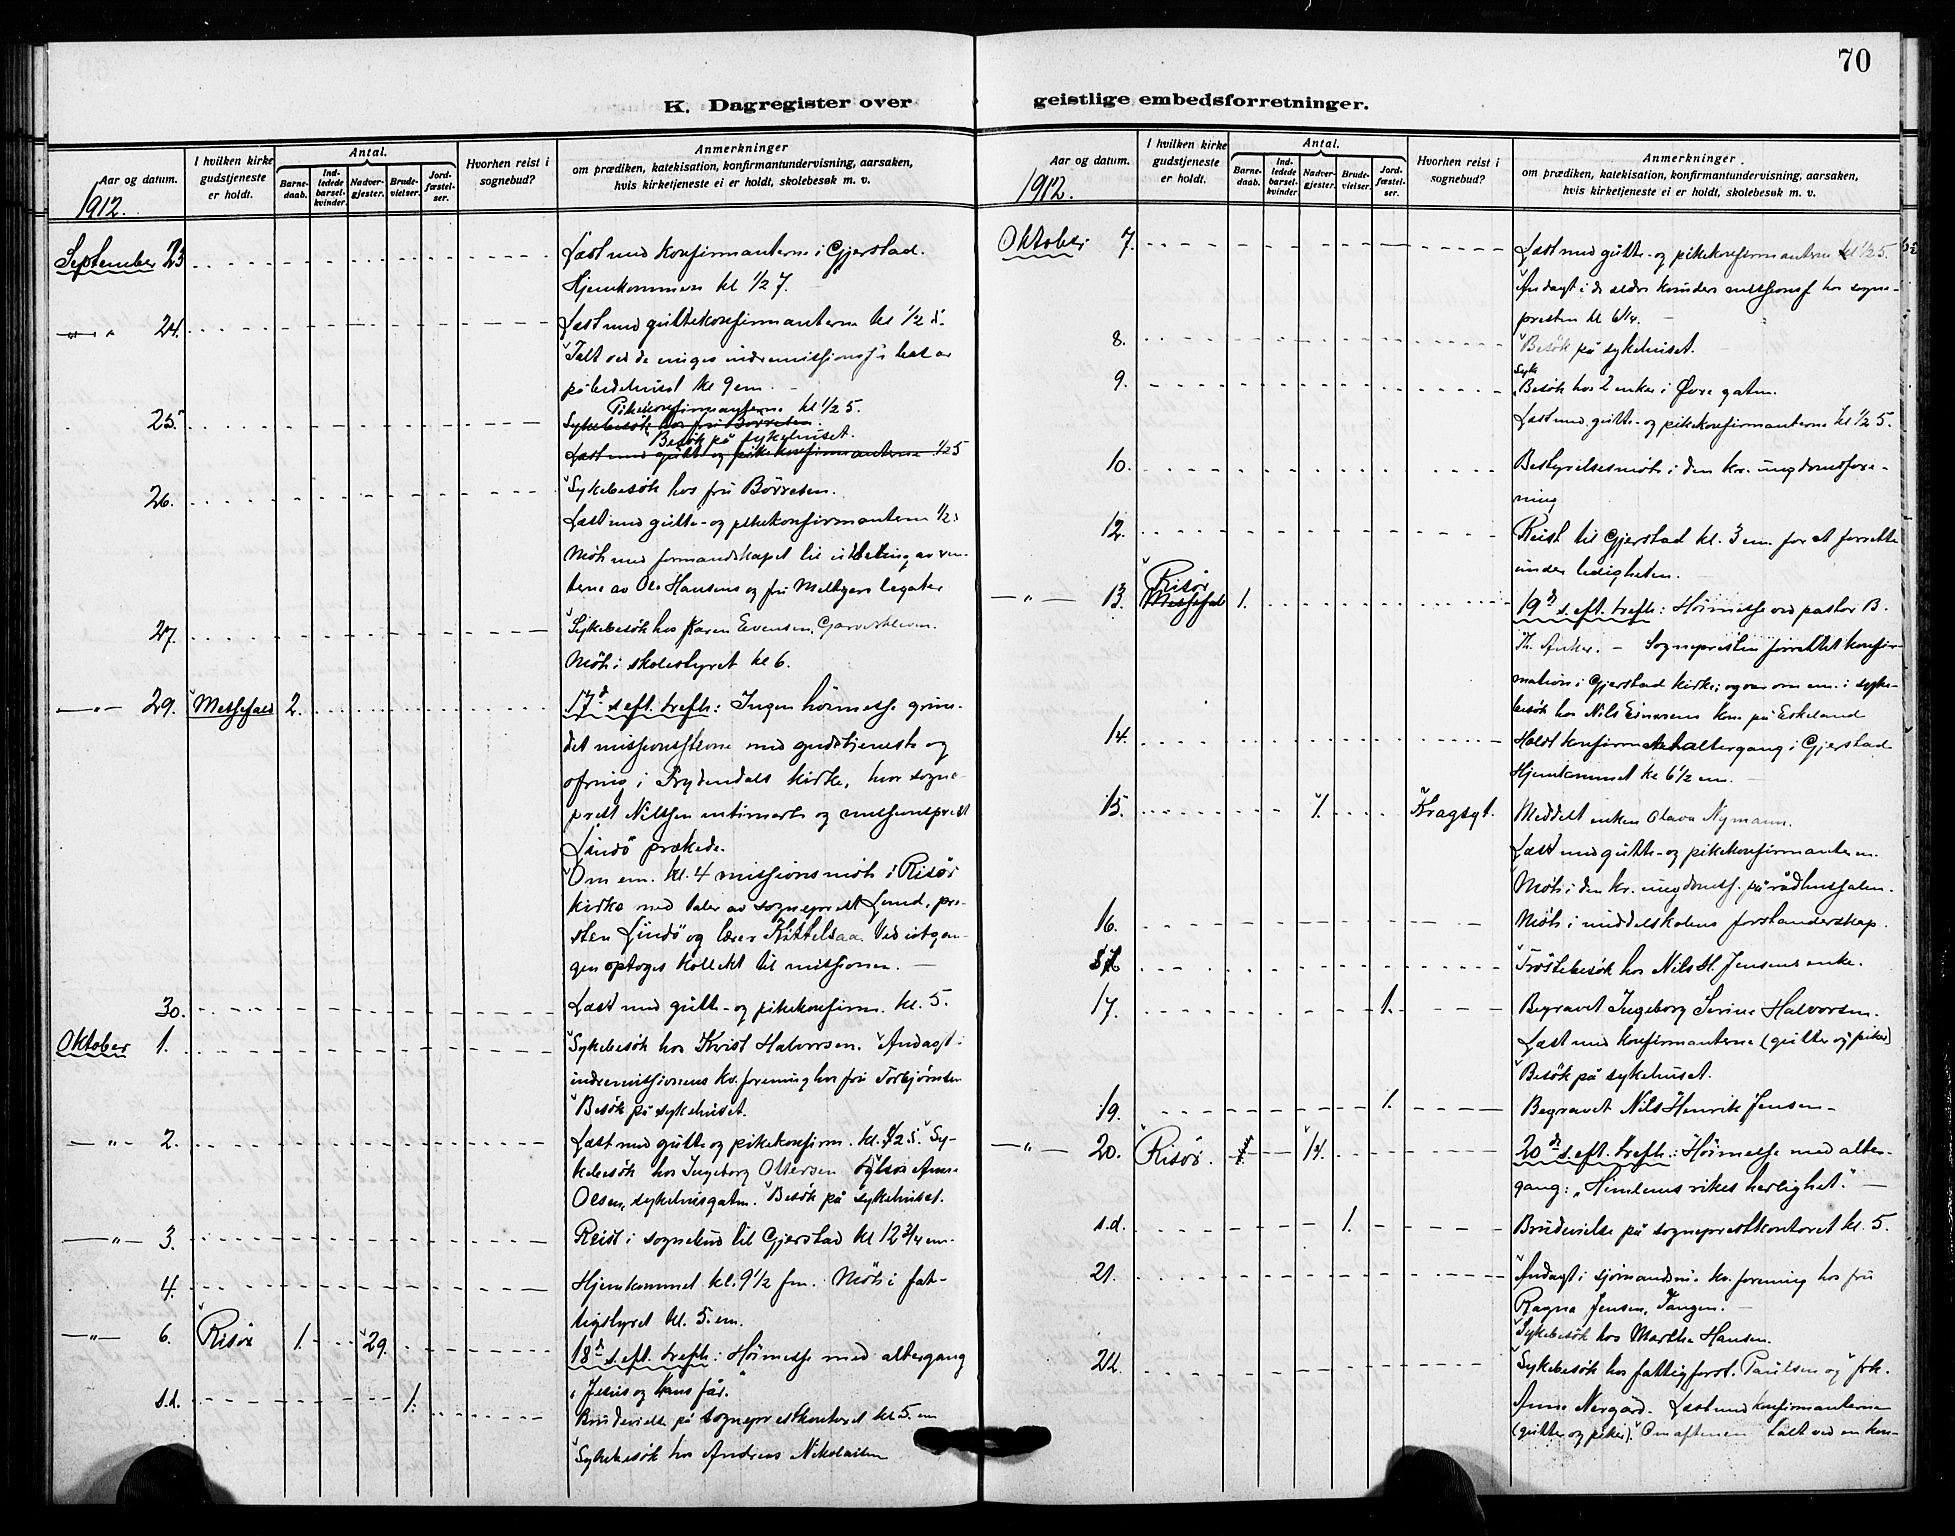 70
K. Dagregister over geistlige embedsforretninger.
Aar og datum.
I hvilken kirke gudstjeneste er holdt.
Antal.
Barnedaab.
Indledede barselkvinder.
Nadvergjester.
Brudevielser.
Jordfæstelser.
Hvorhen reist i sognebud?
Anmerkninger
om prædiken, katekisation, konfirmantundervisning, aarsaken,
hvis kirketjeneste ei er holdt, skolebesøk m. v.
1912.
September 23 Læst med konfirmanterne i Gjerstad.
Hjemkommen kl 1/2 7.
24. Læst med guttekonfirmanterne kl 1/2 5.
Talt ved de unges indremissionsf's
på bedehuset kl 9 em.
25. Pikekonfirmanterne kl 1/2 5.
Sykebesøk hos fru Börresen
Besök på sykehuset.
Læst med gutte og pikekonfirmanterne 1/2 5
26. Sykebesök hos fru Börresen.
Læst med gutte- og pikekonfirmanterne 1/2 5
Möte med formandskapet til utdeling av ren-
terne av Ole Hansens og fru Meltzers legater
27. Sykebesök hos Karen Evensen,
Möte i skolestyret kl 6.
29. Messefald 2. 17d s. eft. trefh: Ingen höimesse grun-
det missionsstevne med gudstjeneste og
ofring i Frydendals kirke, hvor sogne-
prest Nilssen intimerte og missionsprest
Lindö prækede.
Om em. kl. 4 missionsmöte i Risör
kirke med taler av sogneprest Lund, pre-
sten Lindö og lærer Kittelsaa. Ved utgan-
gen optoges kollekt til missionen.
30. Læst med gutte- og pikekonfirm. kl. 5.
Oktober 1. Sykebesök hos Kvist Halvorsen. Andagt i
indremissionens kv. forening hos fru Torbjörnsen
Besök på sykehuset.
2. Læst med gutte og pikekonfirm. kl. 1/2 5. Sy-
kebesök hos Ingeborg Ottersen
Olsen, sykehusgaten. Besök på sykehuset.
3. Reist i sognebud til Gjerstad kl 12 3/4 em.
4. Hjemkommet kl. 9 1/2 fm. Möte i fat-
tigstyret kl. 5. em.
6. Risör 1. 29. 18d s. eft. trefh: Höimesse med altergang
"Jesus og hans får."
s.d. 1. Brudevielse på sogneprestkontoret kl 5. em
Sykebesök hos Andreas Nikolaisen
Aar og datum.
I hvilken kirke gudstjeneste er holdt.
Antal.
Barnedaab.
Indledede barselkvinder.
Nadvergjester.
Brudevielser.
Jordfæstelser.
Hvorhen reist i sognebud?
Anmerkninger.
om prædiken, katekisation, konfirmantundervisning, aarsaken,
hvis kirketjeneste ei er holdt, skolebesøk m. v.
1912.
Oktober 7. Læst med gutte- og pikekonfirmanterne kl 1/2 5.
Andagt i de ældre kvinders missionsf hos sogne-
presten kl 6 1/4.
8. Besök på sykehuset.
9. Syke
Besök hos 2 enker i Øvre gaten.
Læst med gutte- og pikekonfirmanterne kl 1/2 5.
10. Bestyrelsesmöte i den kr. ungdomsfore-
ning
12. Reist til Gjerstad kl. 3 em. for at forrette
under ledigheten.
13. Risör Messefal 1. 19d s. eft. trefh: Höimesse ved pastor B.
Th. Anker. - Sognepresten forrettet konfir-
mation i Gjerstad kirke; og var om em. i syke-
besök hos Nils Einarsens kone på Eskeland
14. Holdt konfirmantaltergang i Gjerstad
Hjemkommet kl 6 1/2 em.
15. 1. Kragsgt. Meddelt enken Olava Nymann.
Læst med gutte- og pikekonfirmanterne.
Möte i den kr. ungdomsf. på rådhussalen.
16. Möte i middelskolens forstanderskap.
Tröstebesök hos Nils H. Jensens enke.
17. 1. Begravet Ingeborg Serine Halvorsen.
Læst med konfirmanterne (gutter og piker)
Besök på sykehuset.
19. 1. Begravet Nils Henrik Jensen
20. Risör. 14. 20de s. eft. trefh.: Höimesse med alter-
gang: "Himlenes rikes herlighet."
s.d. 1. Brudevielse på sogneprestkontoret kl. 5.
21. Andagt i sjömandsmis. kv. forening hos fru
Ragna Jensen, Tangen.
Sykebesök hos Marthe Hansen.
22. Sykebesök hos fattigforst. Paulsen og frk.
Anne Nergård. Læst med konfirmanterne
(gutter og piker). Om aftenen talt ved en kon-